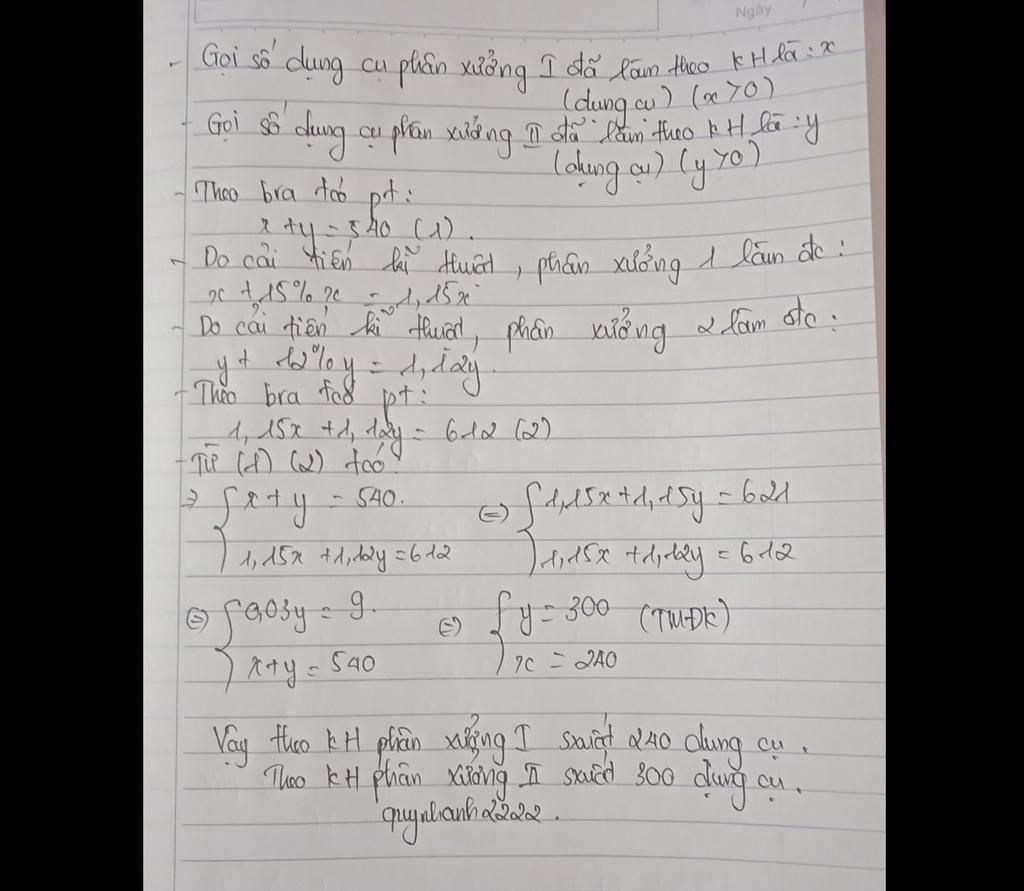 Ngày
- Gọi số dụng cụ phân xưởng I đã làm theo KH là: x
(dụng cụ) (x>0)
- Gọi số dụng cụ phân xưởng II đã làm theo KH là: y
(dụng cụ) (y>0)
- Theo bra tcó pt:
x + y = 540 (1).
- Do cải tiến kĩ thuật, phân xưởng 1 làm đc:
x + 15% x = 1,15x
- Do cải tiến kĩ thuật, phân xưởng 2 làm đc:
y + 12% y = 1,12y.
- Theo bra tcó pt:
1,15x + 1,12y = 612 (2)
- Từ (1) (2) tcó:
=> { x + y = 540. <=> { 1,15x + 1,15y = 621
1,15x + 1,12y = 612 1,15x + 1,12y = 612
<=> { 0,03y = 9. <=> { y = 300 (TMĐK)
x + y = 540 x = 240
Vậy theo KH phân xưởng I sxuất 240 dụng cụ.
Theo KH phân xưởng II sxuất 300 dụng cụ.
quynhanh2222.